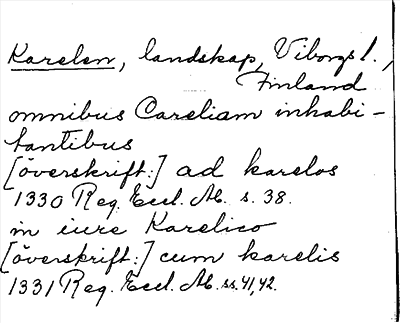 Karelen, landskap, Viborgs l.,
Finland
omnibus Careliam inhabi-
tantibus
[överskrift:] ad karelos
1330 Reg. Eccl. Ab. s. 38.
in iure Karelico
[överskrift:] cum karelis
1331 Reg. Eccl. Ab. ss. 41, 42.